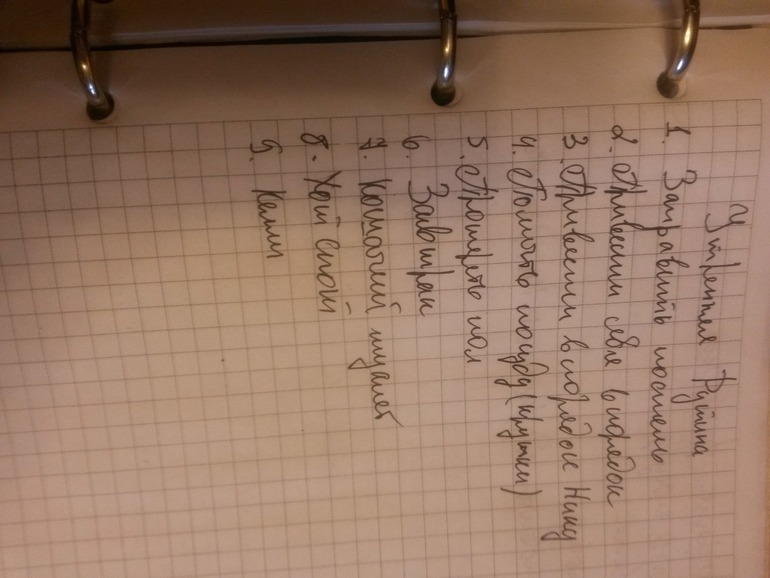 Утренняя Рутина
1. Заправить постель
2. Привести себя в порядок
3. Привести в порядок Нику
4. Помыть посуду (кружки)
5. Протереть пол
6. Завтрак
7. Кошачий туалет
8. Хот Спот
9. Келли